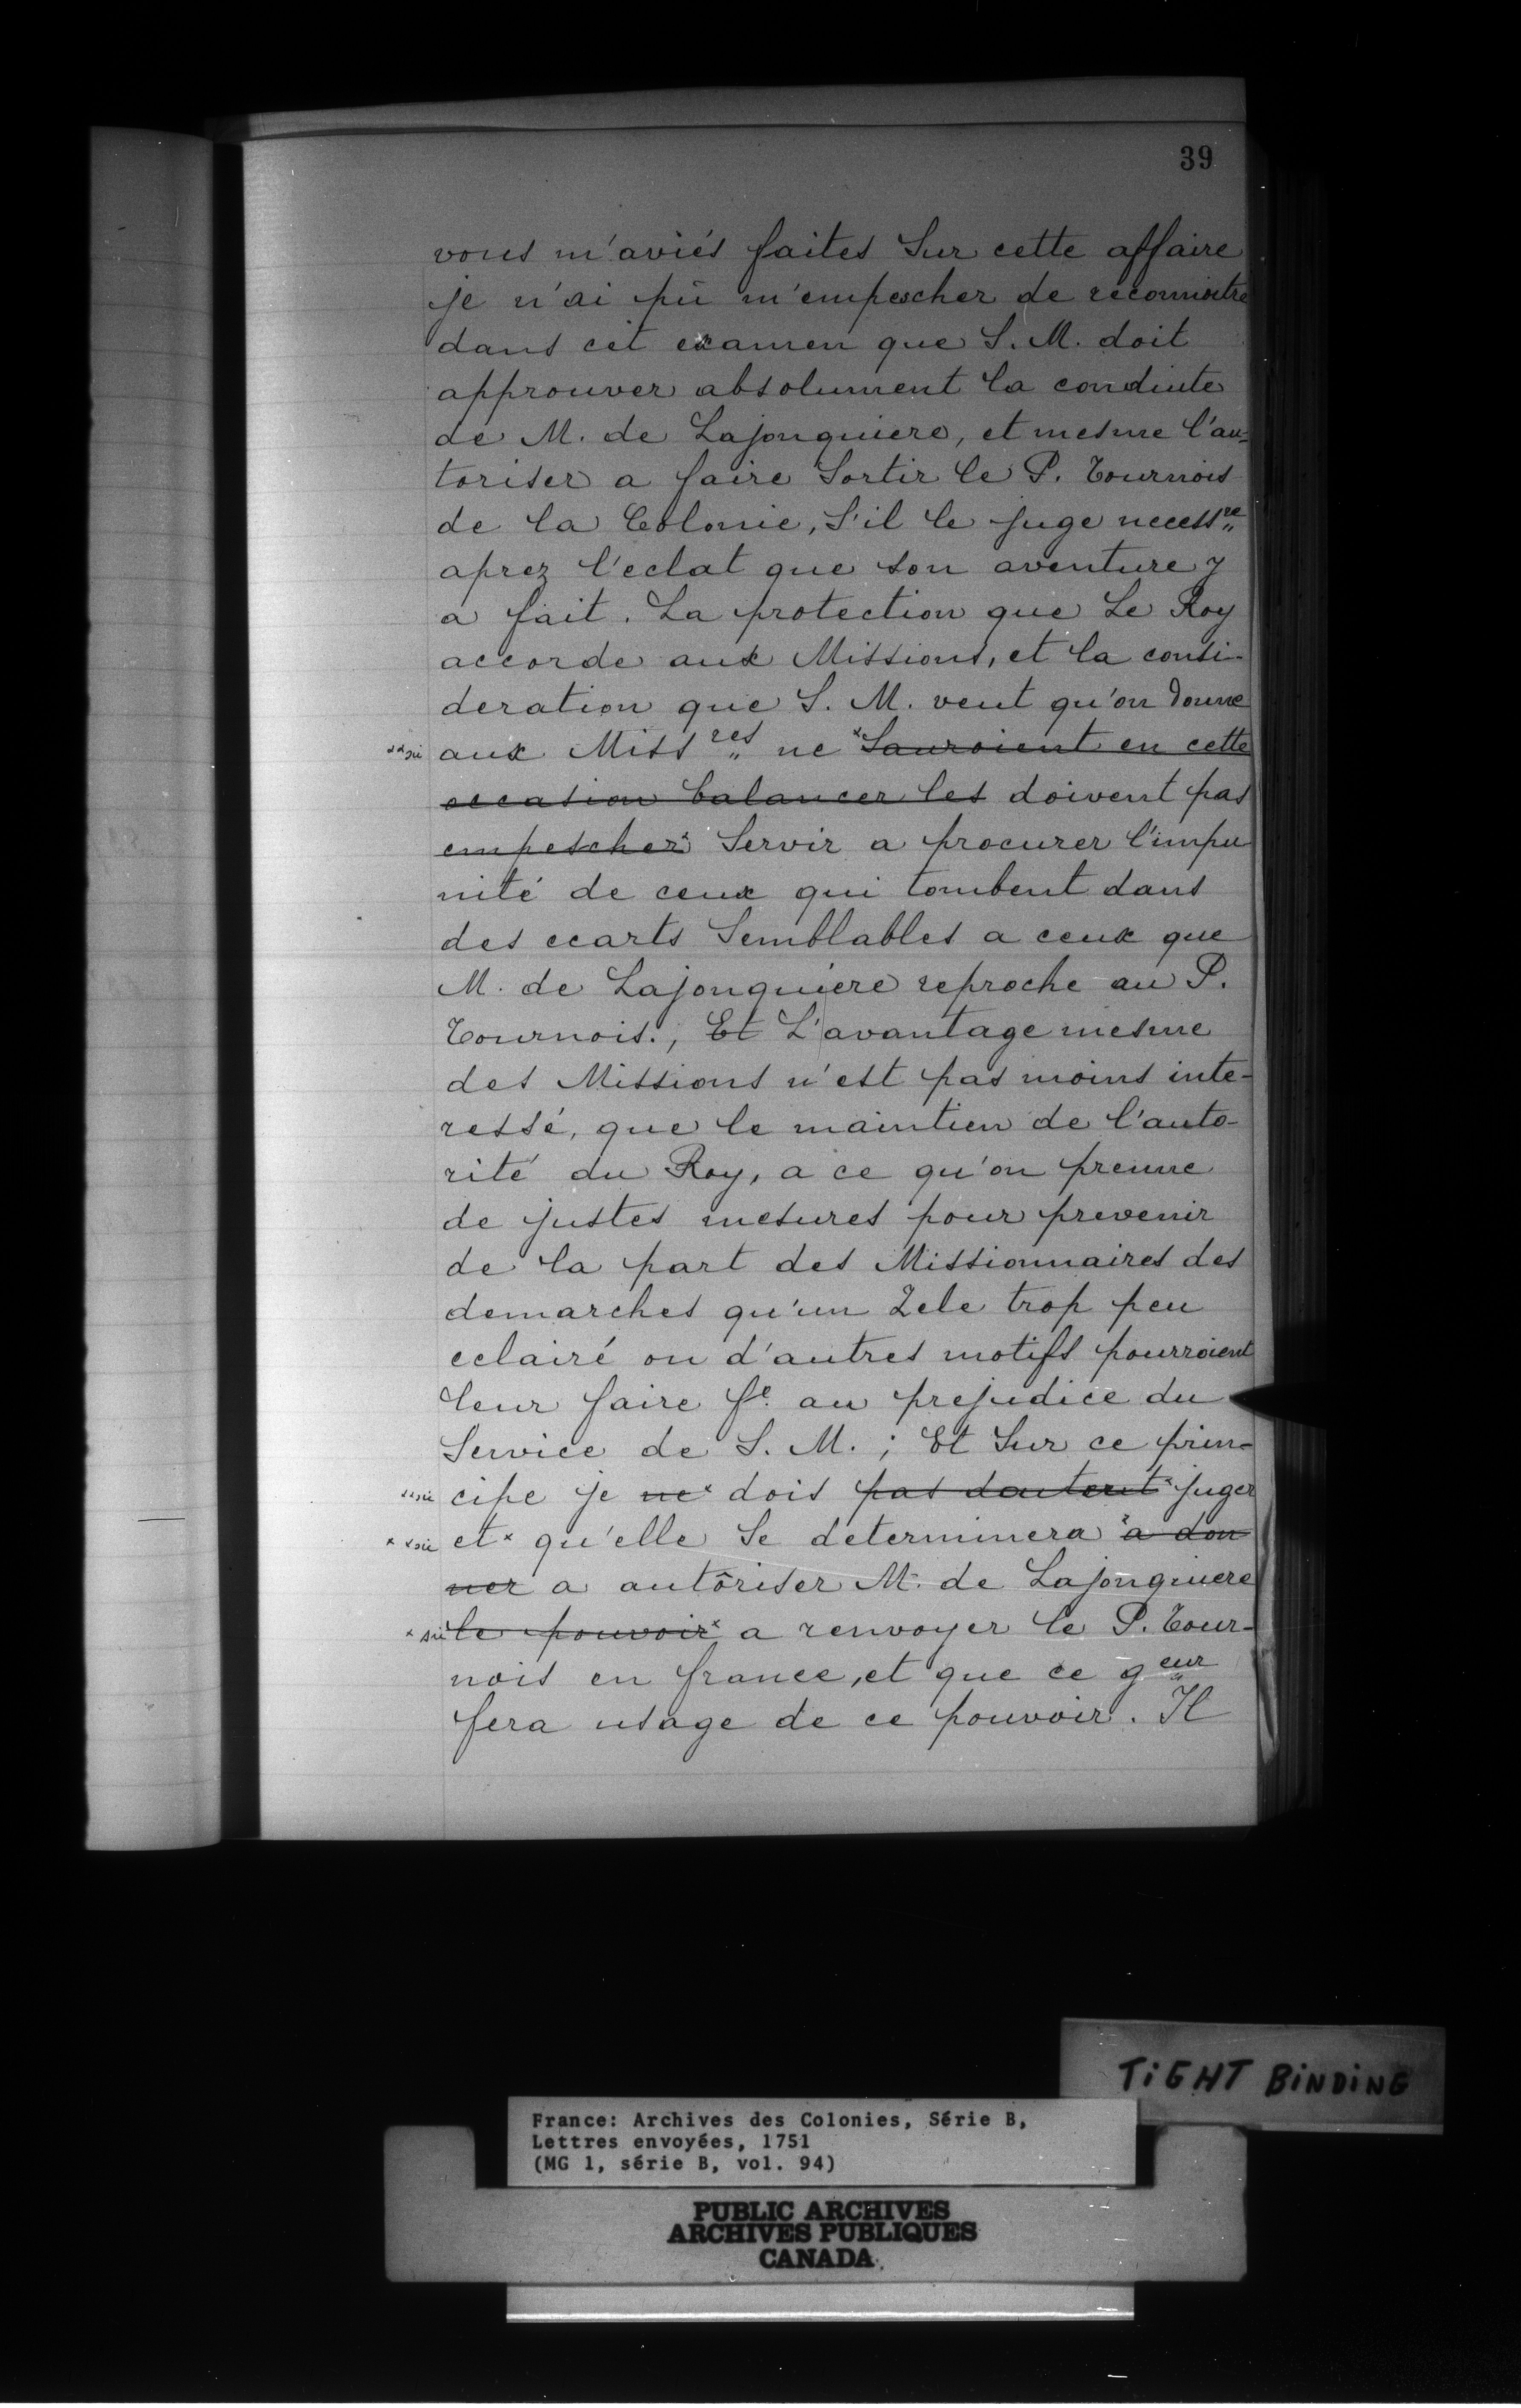 39
vous m'aviés faites Sur cette affaire
je n'ai pû m'empescher de reconnoitre
dans cet examen que S. M. doit
approuver absolument la conduite
de M. de Lajonquiere, et mesme l'au=
toriser a faire Sortir le P. Tournois
de la Colonie, S'il le juge necessre
aprez l'eclat que son aventure y
a fait. La protection que Le Roy
accorde aux Missions, et la consi-
deration que S. M. veut qu'on donne
xx sic aux Missres ne x Sauroient en cette
occasion balancer les doivent pas
empescher x Servir a procurer l'impu
nité de ceux qui tombent dans
des ecarts Semblables a ceux que
M. de Lajonquiere reproche au P.
Tournois., Et L'avantage mesme
des Missions n'est pas moins inte-
ressé, que le maintien de l'auto-
rité du Roy, a ce qu'on prenne
de justes mesures pour prevenir
de la part des Missionnaires des
demarches qu'un Zele trop peu
eclairé ou d'autres motifs pourroient
leur faire fe. au prejudice du
Service de S. M. ; Et Sur ce prin-
xx sic cipe je ne x dois pas douter et x juger
x x sic et x qu'elle Se determinera x a don
ner a autôriser M. de Lajonquiere
x sic le pouvoir x a renvoyer le P. Tour-
nois en france, et que ce geur
fera usage de ce pouvoir. Il
TiGHT BiNDiNG
France: Archives des Colonies, Série B,
Lettres envoyées, 1751
(MG 1, série B, vol. 94)
PUBLIC ARCHIVES
ARCHIVES PUBLIQUES
CANADA